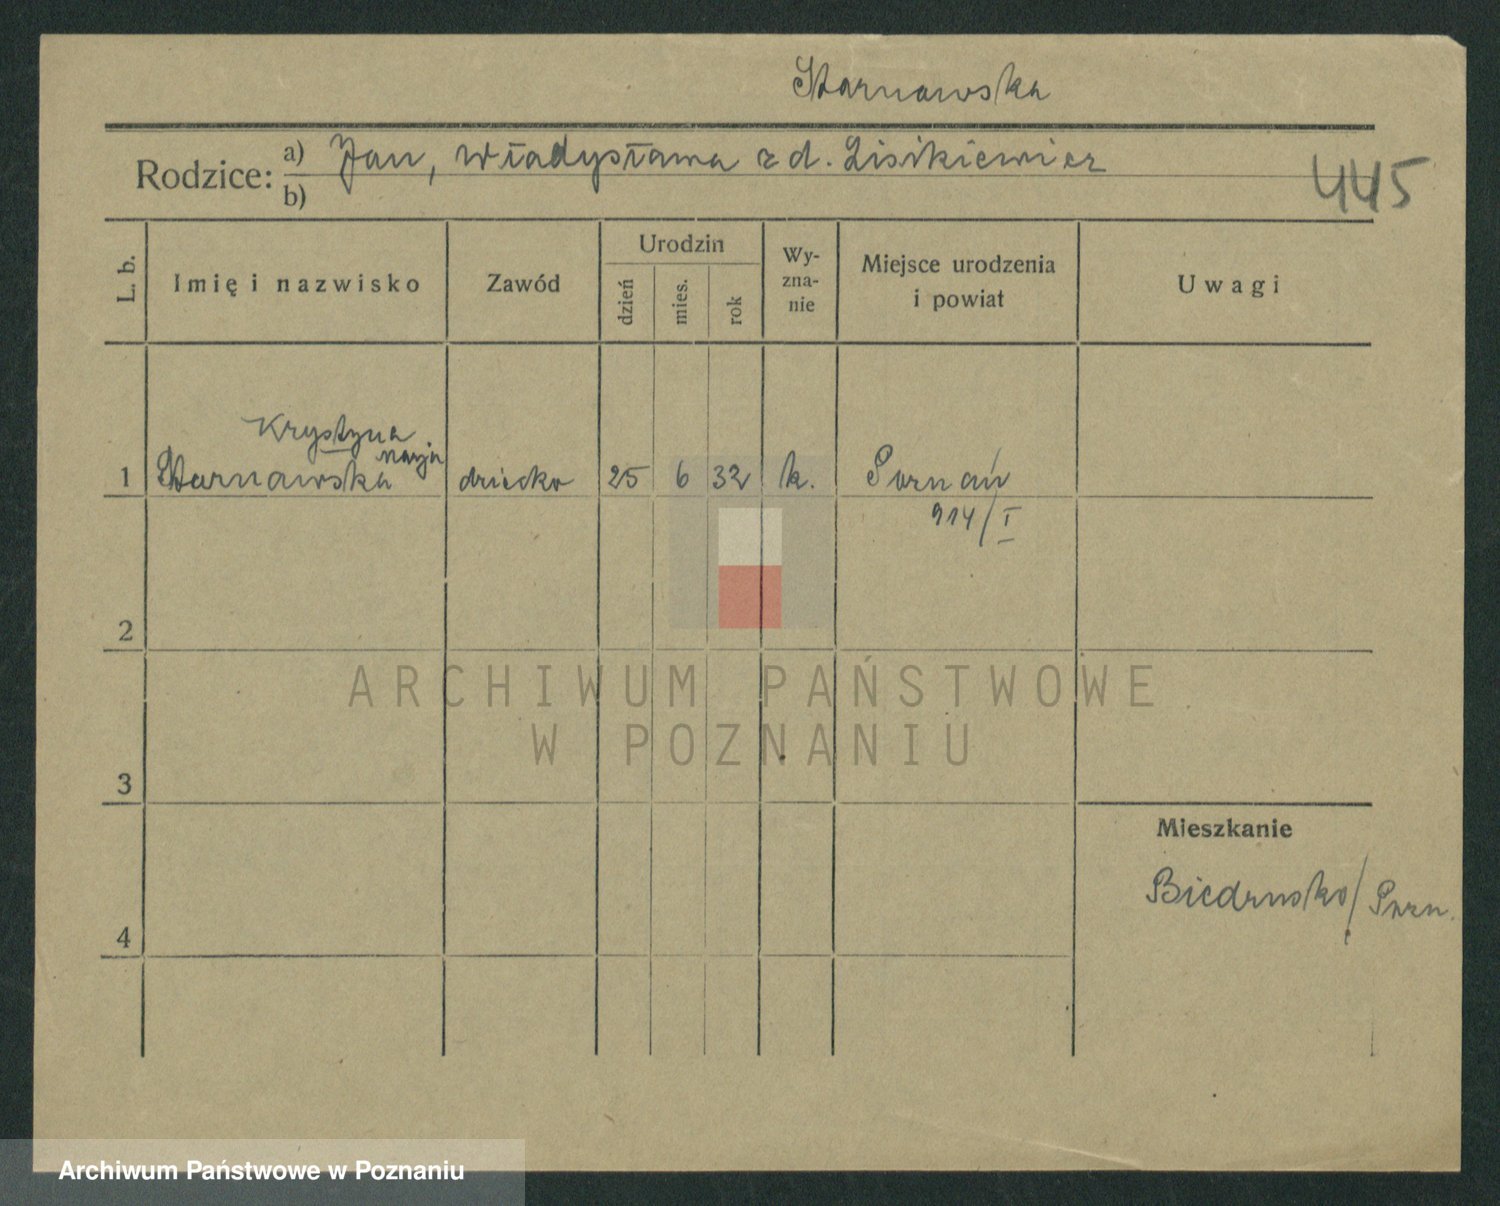 Starnawska
Rodzice: a) Jan, Władysława z d. Lisikiewicz
b)
445
L. b. Imię i nazwisko Zawód Urodzin dzień mies. rok Wy-zna-nie Miejsce urodzenia i powiat Uwagi
Krystyna
Marja
1 Starnawska dziecko 25 6 32 k. Poznań
914/I
2
3
Mieszkanie
Biedrusko/Pozn.
4
ARCHIWUM PAŃSTWOWE
W POZNANIU
Archiwum Państwowe w Poznaniu